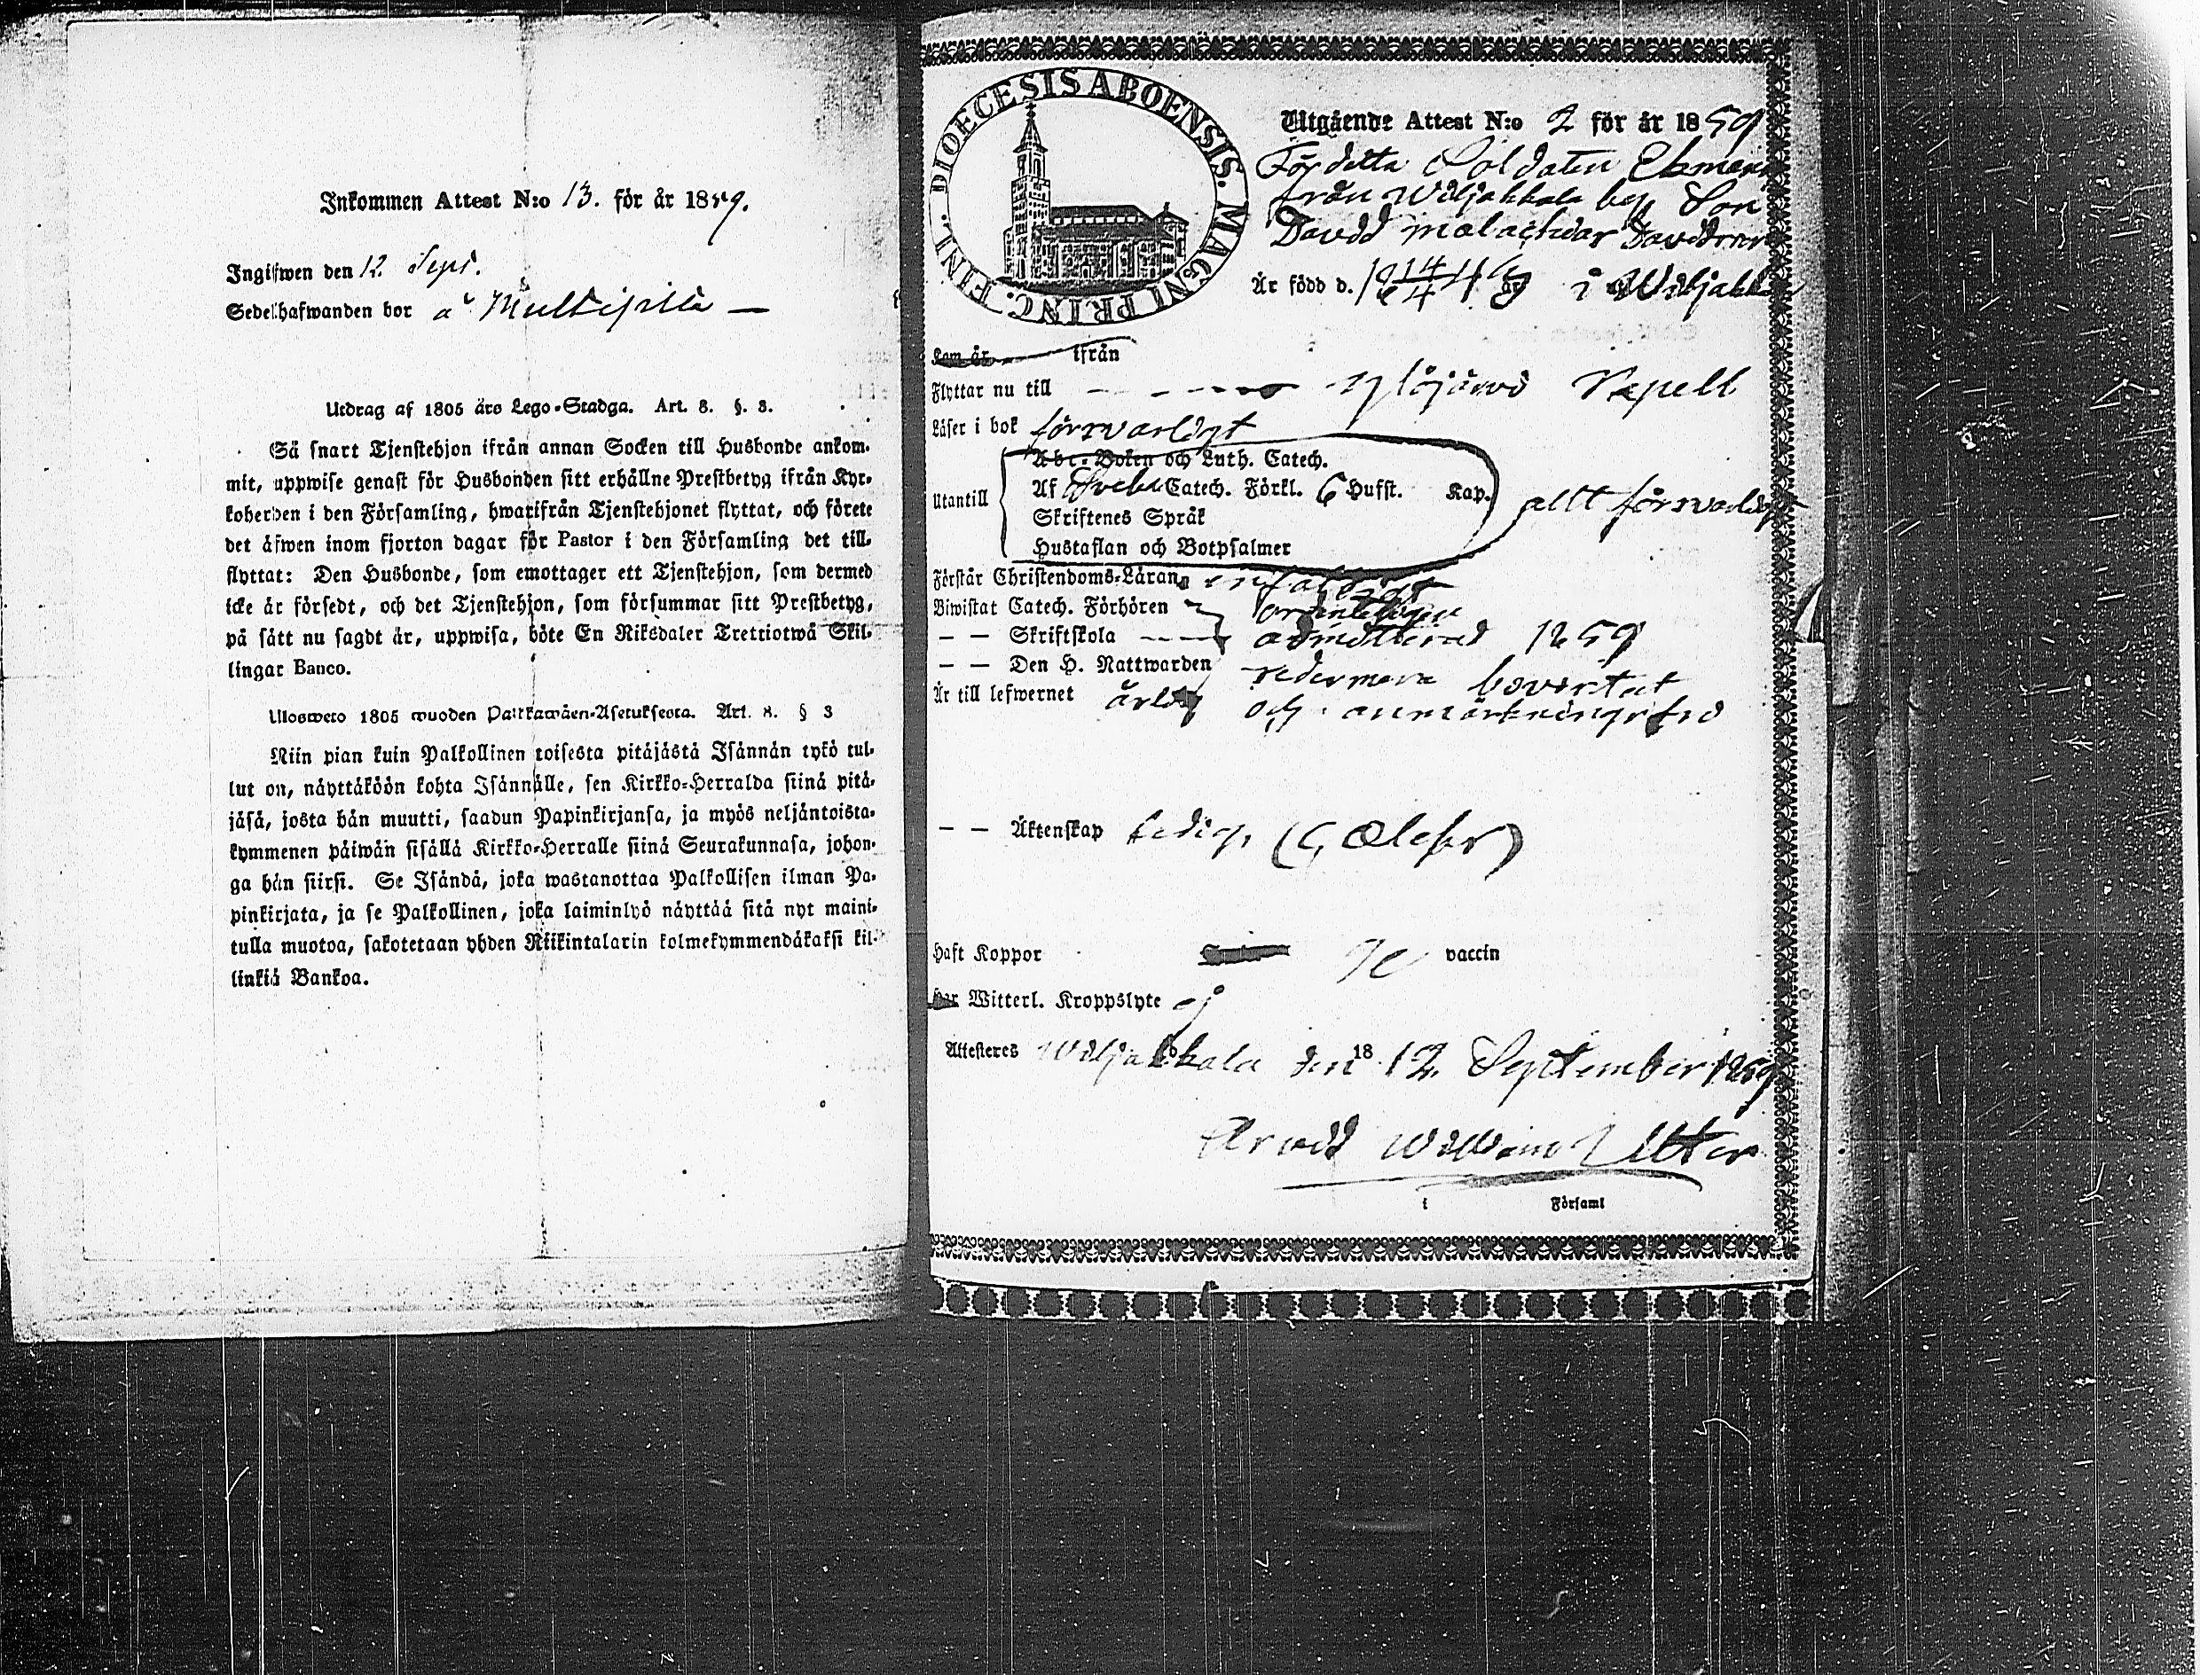 Inkommen Attest N:o 13. för år 1859.
Ingifwen den 12. Sept.
Sedelhafwanden bor å Multisilla —
Utdrag af 1805 års Lego-Stadga. Art. 8. §. 3.
Så snart Tjenstehjon ifrån annan Socken till Husbonde ankom-
mit, uppwise genast för Husbonden sitt erhållne Prestbetyg ifrån Kyr-
koherden i den Församling, hwarifrån Tjenstehjonet flyttat, och förete
det äfwen inom fjorton dagar för Pastor i den Församling det till-
flyttat: Den Husbonde, som emottager ett Tjenstehjon, som dermed
icke är försedt, och det Tjenstehjon, som försummar sitt Prestbetyg,
på sätt nu sagdt är, uppwisa, böte En Riksdaler Trettiotwå Skil-
lingar Banco.
Ulosweto 1805 wuoden Palkkawäen-Asetuksesta. Art. 8. § 3
Niin pian kuin Palkollinen toisesta pitäjästä Isännän tykö tul-
lut on, näyttäköön kohta Isännälle, sen Kirkko-Herralda siinä pitä-
jäsä, josta hän muutti, saadun Papinkirjansa, ja myös neljäntoista-
kymmenen päiwän sisällä Kirkko-Herralle siinä Seurakunnasa, johon-
ga hän siirsi. Se Isändä, joka wastanottaa Palkollisen ilman Pa-
pinkirjata, ja se Palkollinen, joka laiminlyö näyttää sitä nyt maini-
tulla muotoa, sakotetaan yhden Riikintalarin kolmekymmendäkaksi kil-
linkiä Bankoa.
DIOECESIS ABOENSIS. MAGNI PRINC. FINL.
Utgående Attest N:o 2 för år 1859
För detta Soldaten Ekmans
från Wiljakkala by Son
David Malachias Davidsson
Är född d. 18 14/4 4 i Wiljakkala
Kom år ifrån
Flyttar nu till — — — Ylöjärvi Kapell
Läser i bok försvarligt
Utantill
Abc-Boken och Luth. Catech.
Af Svebel Catech. Förkl. 6 Hufst. Kap.
Skriftenes Språk
Hustaflan och Botpsalmer
allt försvarligt
Förstår Christendoms-Läran enfaldigt
Biwistat Catech. Förhören ordentligen
— — Skriftskola — — admitterad 1859
— — Den H. Nattwarden sedermera bevistat
Är till lefwernet ärlig och anmärkningsfri
— — Äktenskap ledig,
Haft Koppor vaccin
Har Witterl. Kroppslyte ej
Attesteres Wiljakkala den 18 12 September 1859
Arvid William Utter
i Församl